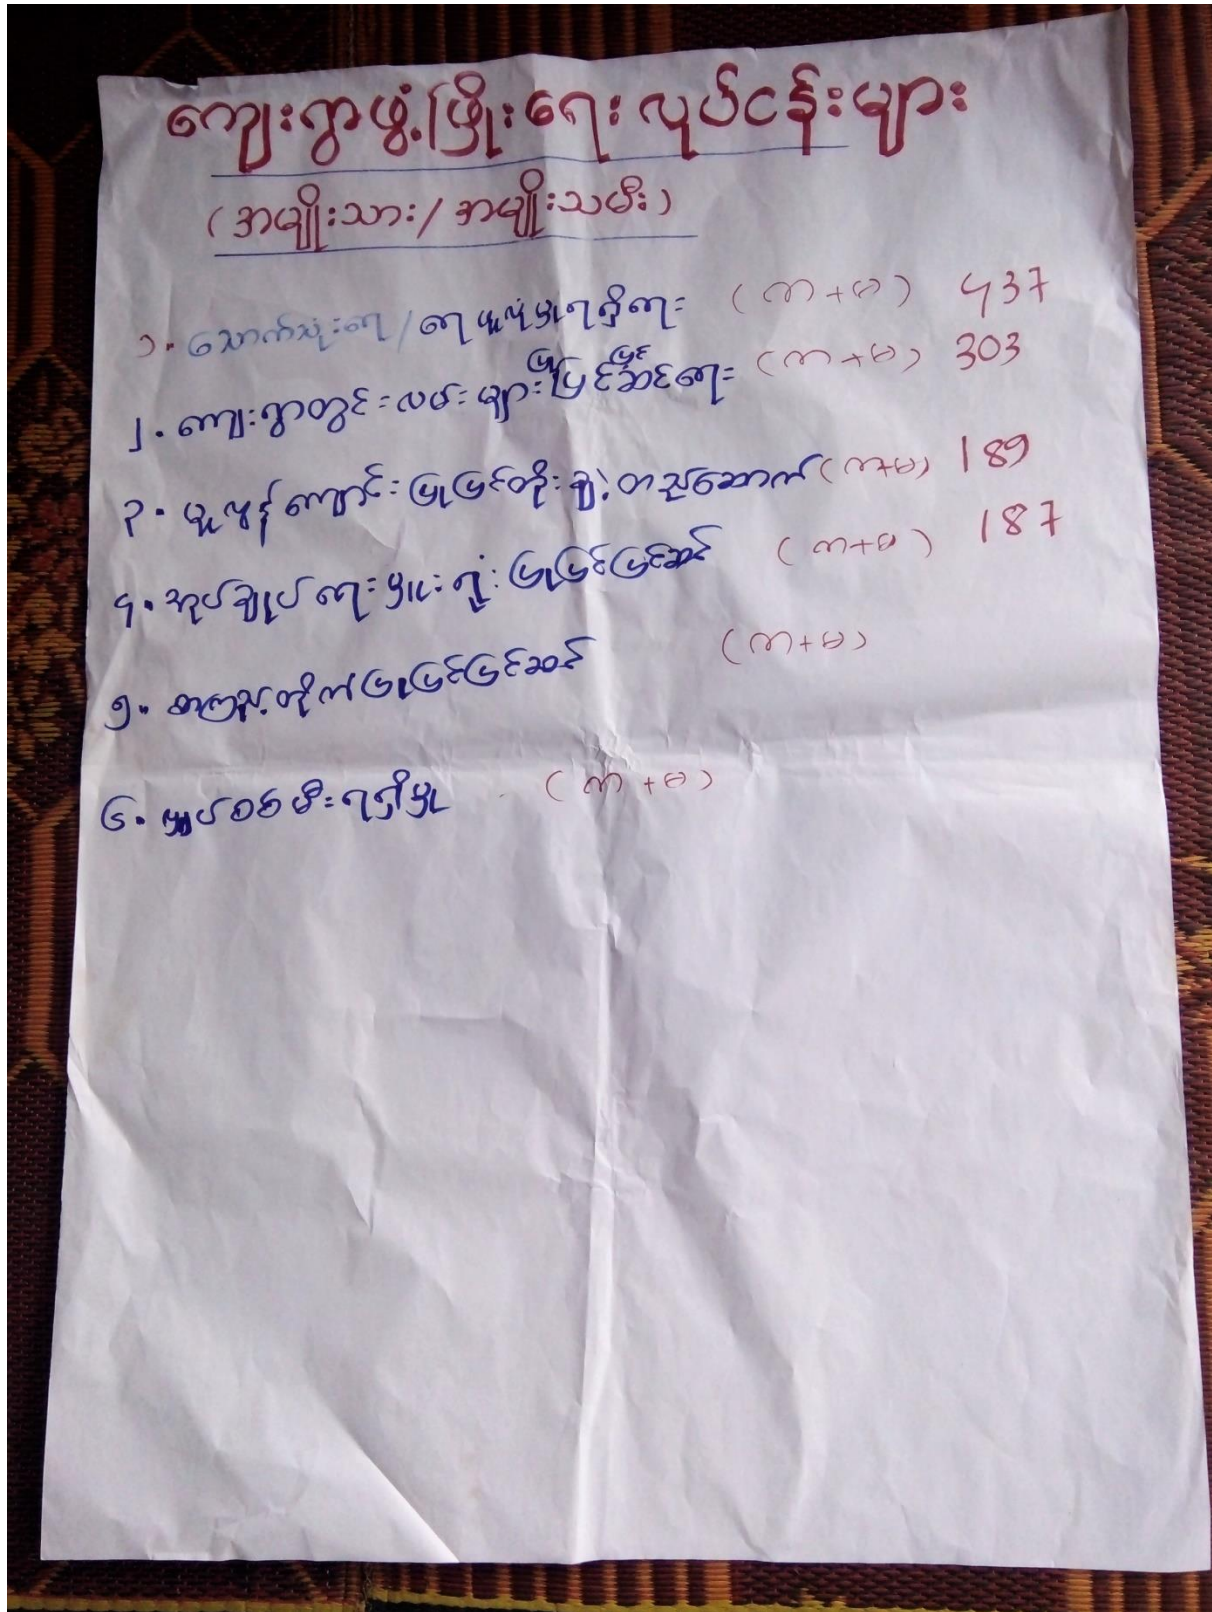 ကျေးရွာဖွံ့ဖြိုးရေးလုပ်ငန်းများ
(အမျိုးသား/အမျိုးသမီး)
၁. သောက်သုံးရေ/ရေ ရရှိရေး (ကာ+မ) 437
၂. ကျေးရွာတွင်းလမ်းများပြုပြင်ဆင်ရေး (ကာ+မ) 303
၃. မူလွန်ကျောင်းပြုပြင်တိုးချဲ့တည်ဆောက် (ကာ+မ) 189
၄. အုပ်ချုပ်ရေးမှူးရုံးပြုပြင်ပြင်ဆင် (ကာ+မ) 187
၅. စာကြည့်တိုက်ပြုပြင်ပြင်ဆင် (ကာ+မ)
၆. လျှပ်စစ်မီးရရှိမှု (ကာ+မ)